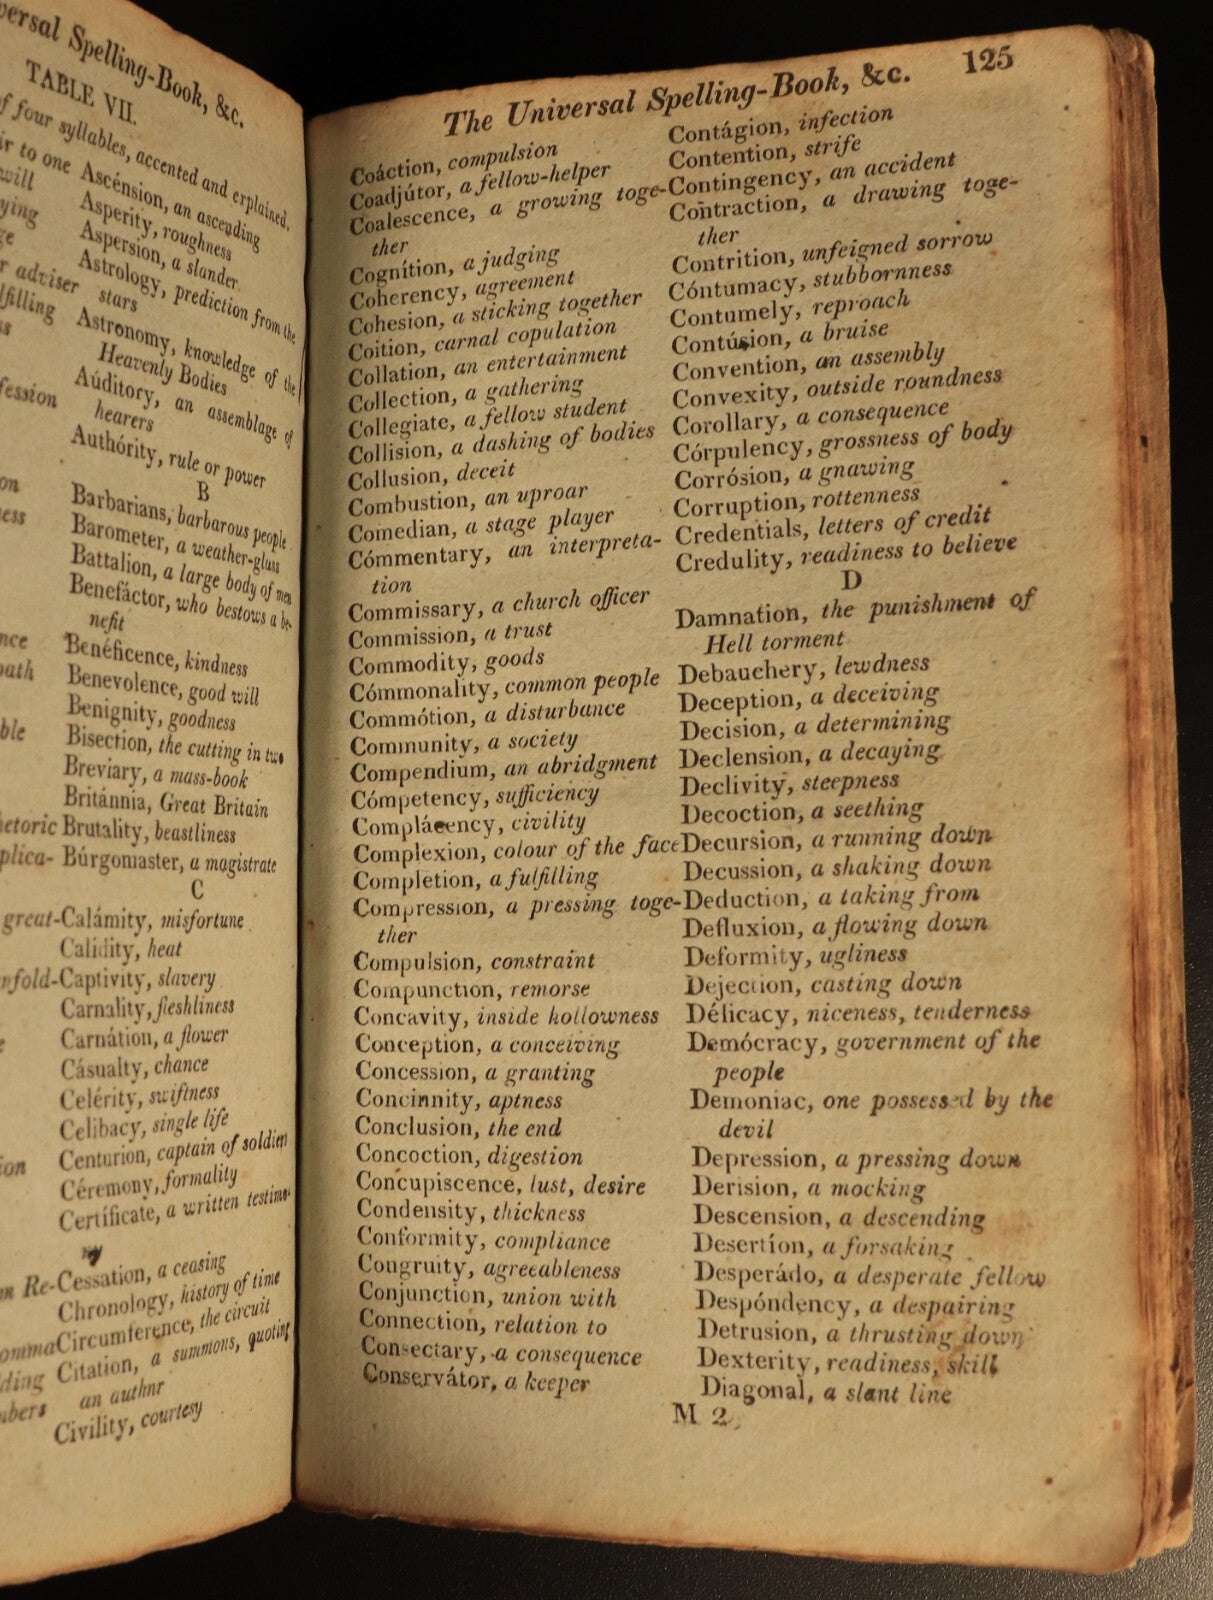 versal Spelling-Book, &c.
TABLE VII.
of four syllables, accented and explained.
ir to one
will
ying
ge
r adviser
lfilling
fession
on
ness
nce
path
ble
hetoric
plica-
great-
nfold-
ion
m Re-
omma
ding
mbers
Ascénsion, an ascending
Asperity, roughness
Aspersion, a slander
Astrology, prediction from the
stars
Astronomy, knowledge of the
Heavenly Bodies
Aúditory, an assemblage of
hearers
Authórity, rule or power
B
Barbarians, barbarous people
Barometer, a weather-glass
Battalion, a large body of men
Benefáctor, who bestows a be-
nefit
Benéficence, kindness
Benevolence, good will
Benignity, goodness
Bisection, the cutting in two
Breviary, a mass-book
Británnia, Great Britain
Brutality, beastliness
Búrgomaster, a magistrate
C
Calámity, misfortune
Calidity, heat
Captivity, slavery
Carnality, fleshliness
Carnátion, a flower
Cásualty, chance
Celérity, swiftness
Celibacy, single life
Centurion, captain of soldiers
Céremony, formality
Certíficate, a written testimo-
ny
Cessation, a ceasing
Chronology, history of time
Circumference, the circuit
Citation, a summons, quoting
an author
Civility, courtesy
The Universal Spelling-Book, &c. 125
Coáction, compulsion
Coadjútor, a fellow-helper
Coalescence, a growing toge-
ther
Cognítion, a judging
Coherency, agreement
Cohesion, a sticking together
Coition, carnal copulation
Collation, an entertainment
Collection, a gathering
Collegiate, a fellow student
Collision, a dashing of bodies
Collusion, deceit
Combustion, an uproar
Comedian, a stage player
Cómmentary, an interpreta-
tion
Commissary, a church officer
Commission, a trust
Commodity, goods
Cómmonality, common people
Commótion, a disturbance
Community, a society
Compendium, an abridgment
Cómpetency, sufficiency
Complácency, civility
Complexion, colour of the face
Completion, a fulfilling
Compression, a pressing toge-
ther
Compulsion, constraint
Compunction, remorse
Concavity, inside hollowness
Conception, a conceiving
Concession, a granting
Concinnity, aptness
Conclusion, the end
Concoction, digestion
Concupiscence, lust, desire
Condensity, thickness
Conformity, compliance
Congruity, agreeableness
Conjunction, union with
Connection, relation to
Consectary, a consequence
Conservátor, a keeper
Contágion, infection
Contention, strife
Contingency, an accident
Contraction, a drawing toge-
ther
Contrition, unfeigned sorrow
Cóntumacy, stubbornness
Contumely, reproach
Contúsion, a bruise
Convention, an assembly
Convexity, outside roundness
Corollary, a consequence
Córpulency, grossness of body
Corrósion, a gnawing
Corruption, rottenness
Credentials, letters of credit
Credulity, readiness to believe
D
Damnation, the punishment of
Hell torment
Debauchery, lewdness
Deception, a deceiving
Decision, a determining
Declension, a decaying
Declivity, steepness
Decoction, a seething
Decursion, a running down
Decussion, a shaking down
Deduction, a taking from
Defluxion, a flowing down
Deformity, ugliness
Dejection, casting down
Délicacy, niceness, tenderness
Demócracy, government of the
people
Demoniac, one possessed by the
devil
Depression, a pressing down
Derision, a mocking
Descension, a descending
Desertion, a forsaking
Desperádo, a desperate fellow
Despóndency, a despairing
Detrusion, a thrusting down
Dexterity, readiness, skill
Diagonal, a slant line
M 2